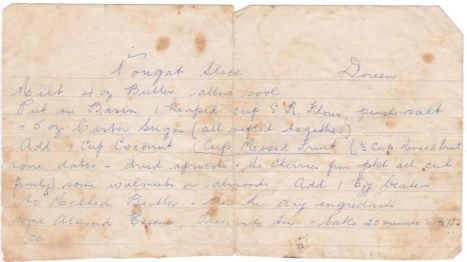 Nougat Slice Doreen
Melt 4 oz Butter allow cool
Put in Basin 1 heaped cup S R Flour, pinch salt
+ 5 oz Castor Sugar (all sifted together)
Add 1 Cup Coconut 1 Cup Mixed Fruit (½ Cup Mixed Fruit
some dates - dried apricots - the cherries from pkt all cut
finely) some walnuts or almonds, Add 1 Egg beaten
to Melted Butter - the dry ingredients
some Almond Essence, Press into tin - bake 20 minutes
Ice